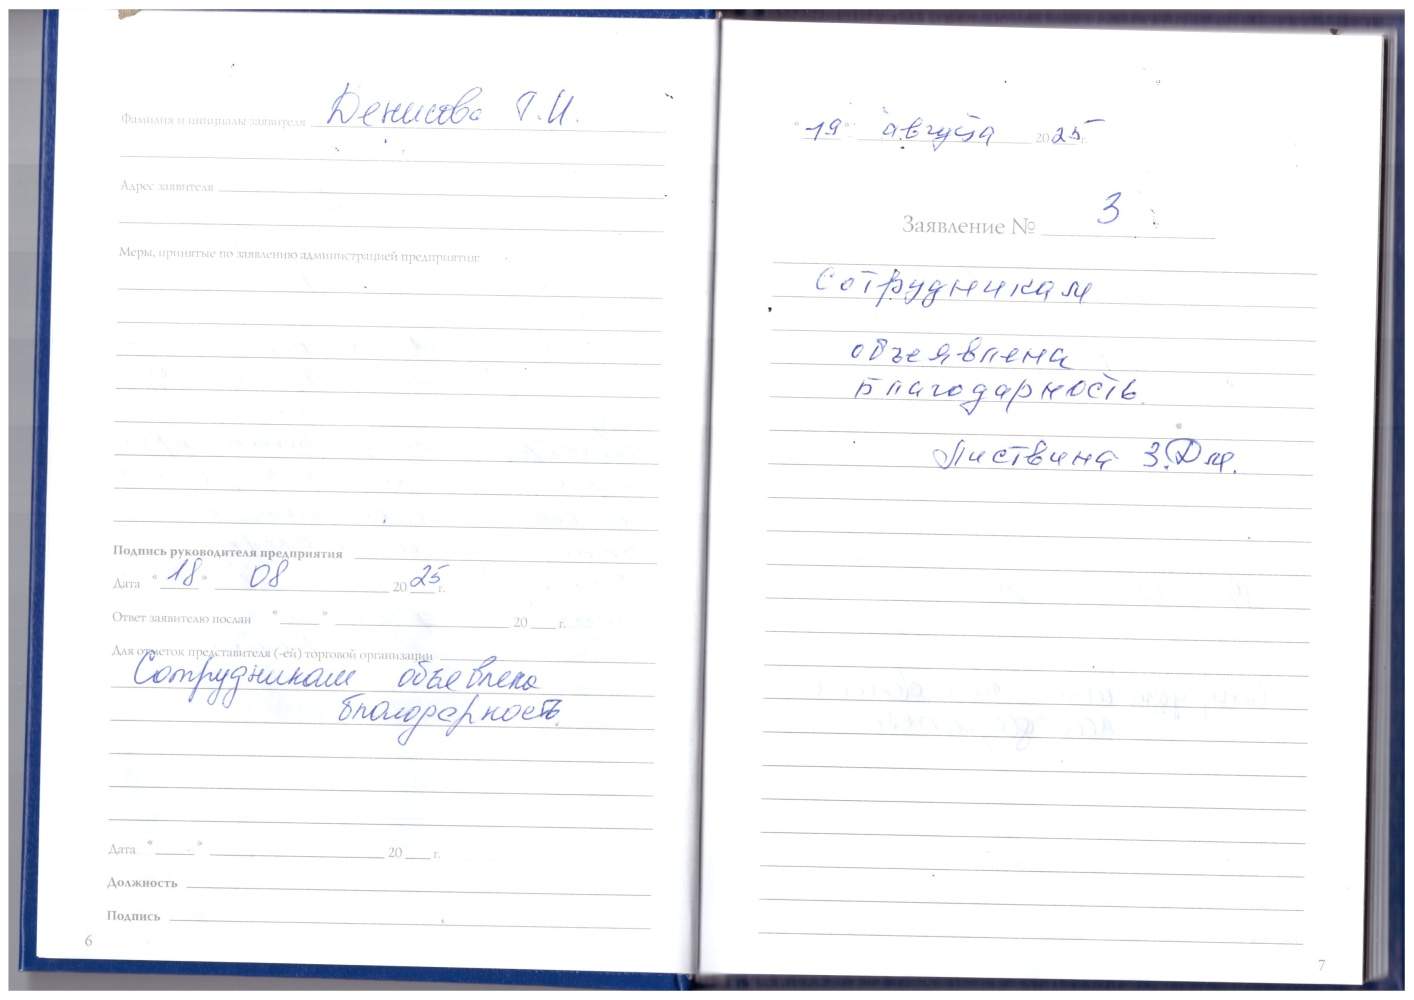 Фамилия и инициалы заявителя Денисова Т.И.
Адрес заявителя
Меры, принятые по заявлению администрацией предприятия:
Подпись руководителя предприятия
Дата "18" 08 2025 г.
Ответ заявителю послан " " 20 г.
Для отметок представителя (-ей) торговой организации
Сотрудникам объевлена
благодарность.
Дата " " 20 г.
Должность
Подпись
6
"19" августа 2025 г.
Заявление № 3
Сотрудникам
объеявлена
благодарность.
Листвина З.Дм.
7